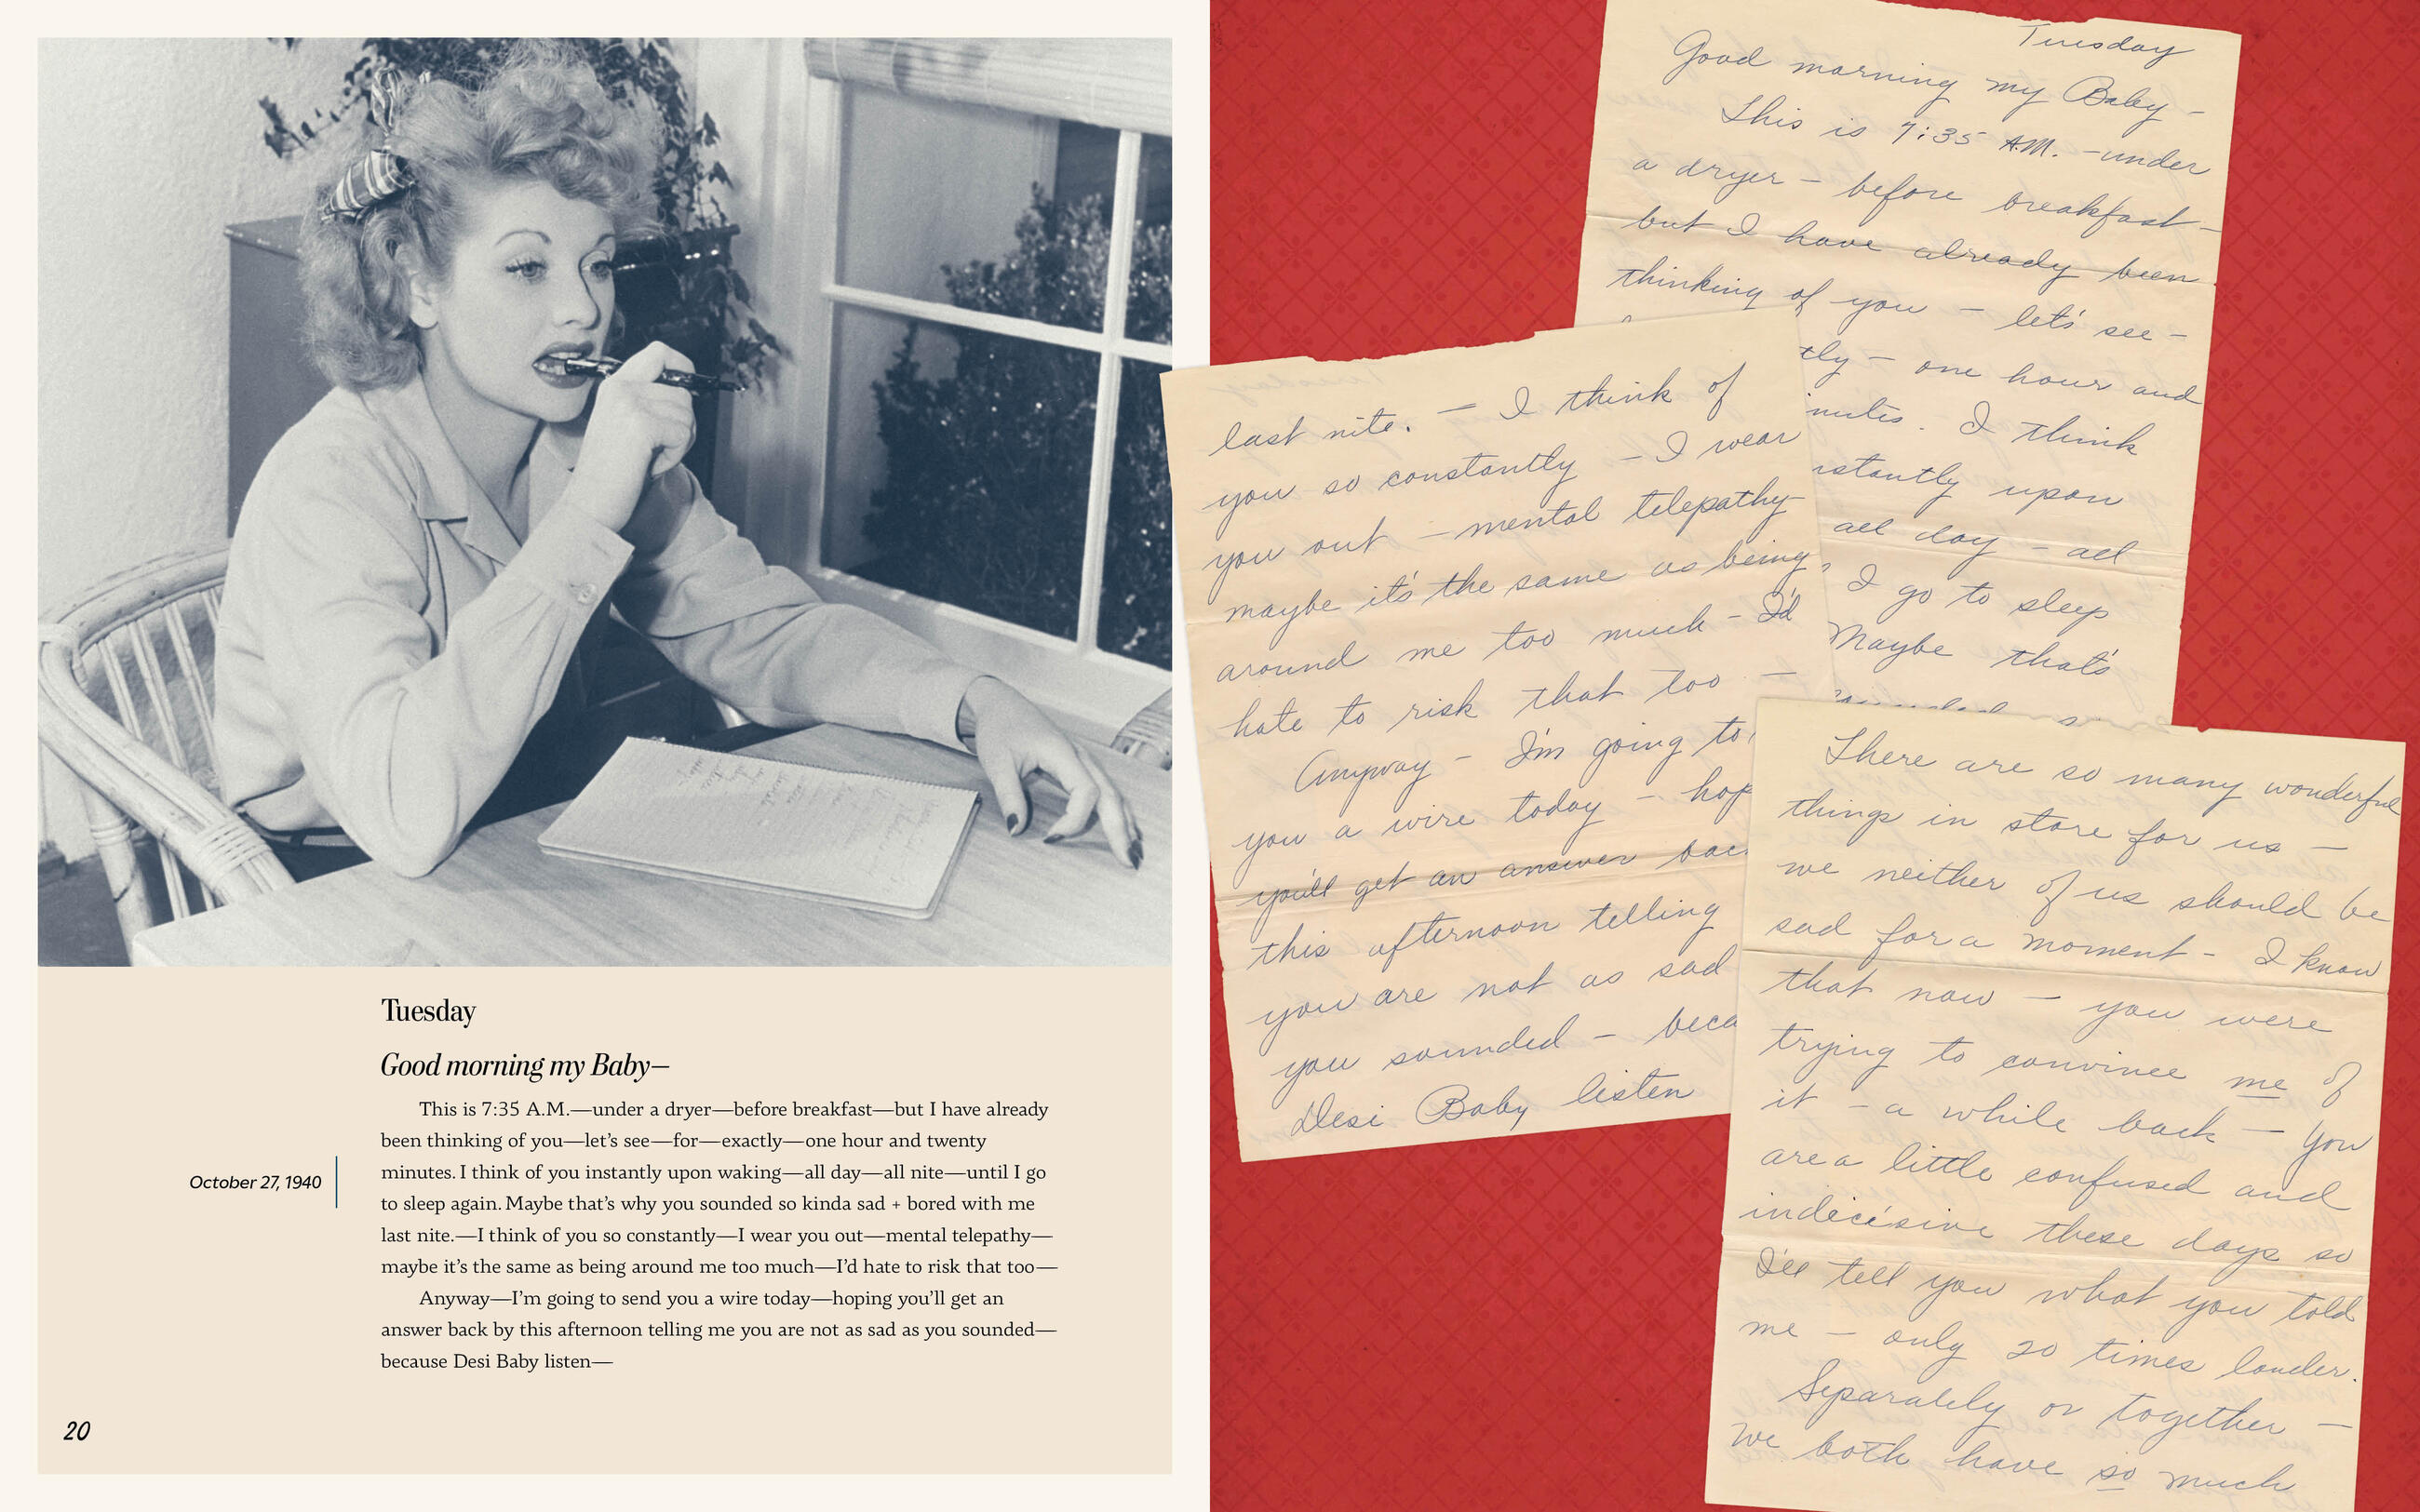 Tuesday
Good morning my Baby—
This is 7:35 A.M.—under a dryer—before breakfast—but I have already
been thinking of you—let’s see—for—exactly—one hour and twenty
minutes. I think of you instantly upon waking—all day—all nite—until I go
to sleep again. Maybe that’s why you sounded so kinda sad + bored with me
last nite.—I think of you so constantly—I wear you out—mental telepathy—
maybe it’s the same as being around me too much—I’d hate to risk that too—
Anyway—I’m going to send you a wire today—hoping you’ll get an
answer back by this afternoon telling me you are not as sad as you sounded—
because Desi Baby listen—
October 27, 1940
20
Tuesday
Good morning my Baby –
This is 7:35 A.M. – under
a dryer – before breakfast –
but I have already been
thinking of you – let's see –
tly – one hour and
nutes. I think
nstantly upon
all day – all
I go to sleep
Maybe that's
last nite. – I think of
you so constantly – I wear
you out – mental telepathy –
maybe it's the same as being
around me too much – I'd
hate to risk that too –
Anyway – I'm going to
you a wire today – hop
you'll get an answer bac
this afternoon telling
you are not as sad
you sounded – beca
Desi Baby listen
There are so many wonderful
things in store for us –
we neither of us should be
sad for a moment – I know
that now – you were
trying to convince me of
it – a while back – You
are a little confused and
indecisive these days so
I'll tell you what you told
me – only 20 times louder.
Separately or together –
we both have so much